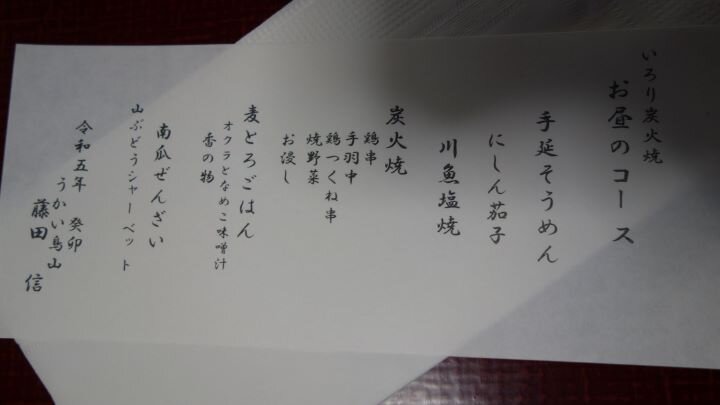 いろり炭火焼
お昼のコース
手延そうめん
にしん茄子
川魚塩焼
炭火焼
鶏串
手羽中
鶏つくね串
焼野菜
お浸し
麦とろごはん
オクラとなめこ味噌汁
香の物
南瓜ぜんざい
山ぶどうシャーベット
令和五年 癸卯
うかい鳥山
藤田 信